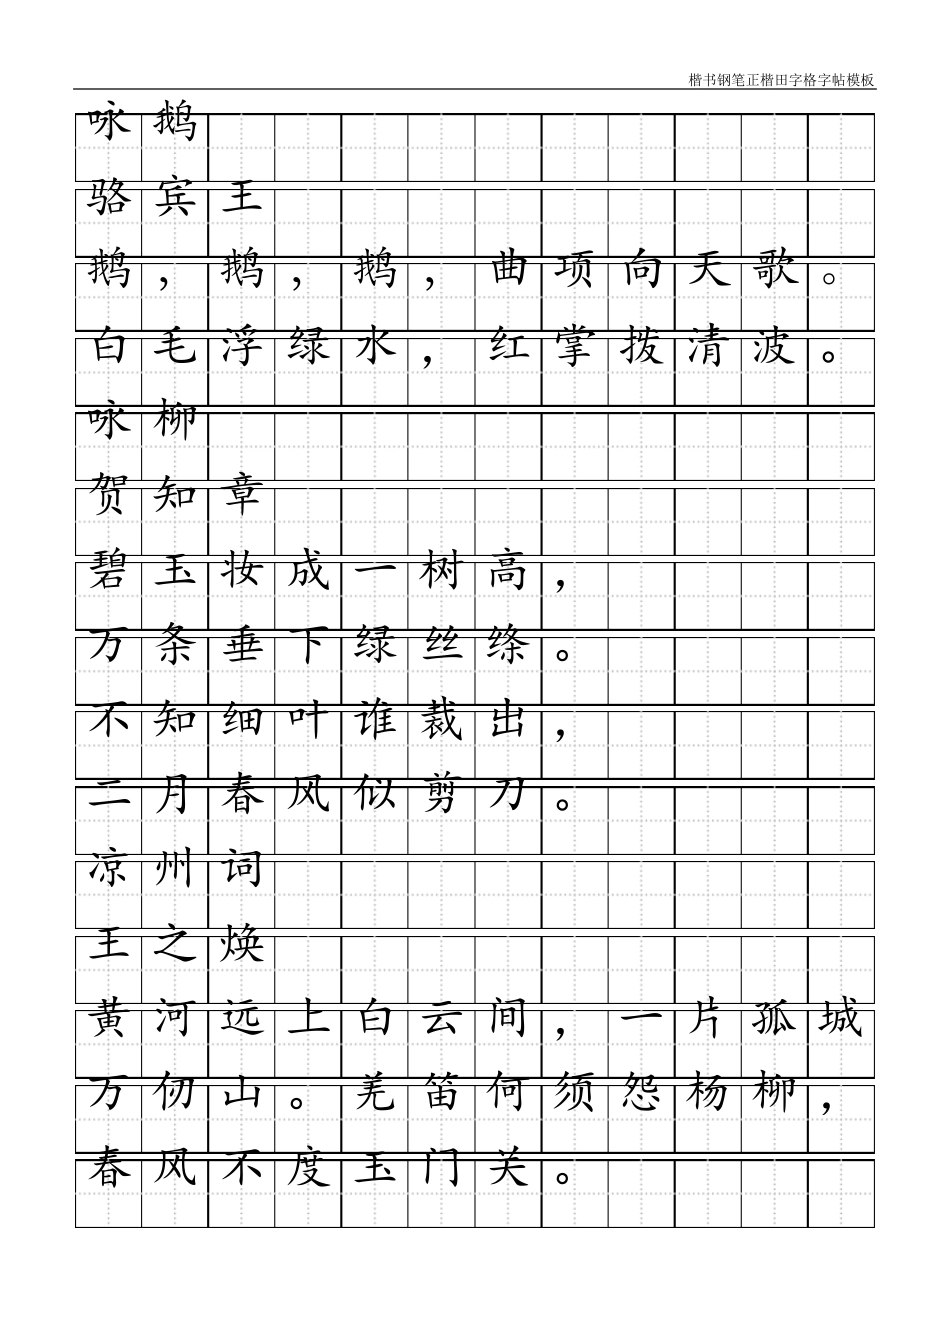 楷书钢笔正楷田字格字帖模板
咏鹅
骆宾王
鹅，鹅，鹅，曲项向天歌。
白毛浮绿水，红掌拨清波。
咏柳
贺知章
碧玉妆成一树高，
万条垂下绿丝绦。
不知细叶谁裁出，
二月春风似剪刀。
凉州词
王之焕
黄河远上白云间，一片孤城
万仞山。羌笛何须怨杨柳，
春风不度玉门关。